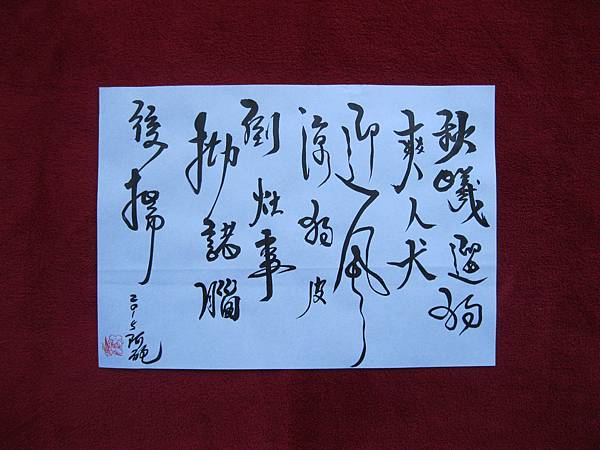 秋曦遛狗
爽人犬
迎風
涼狗皮
倒灶事
拋諸腦
後掃
2015 阿